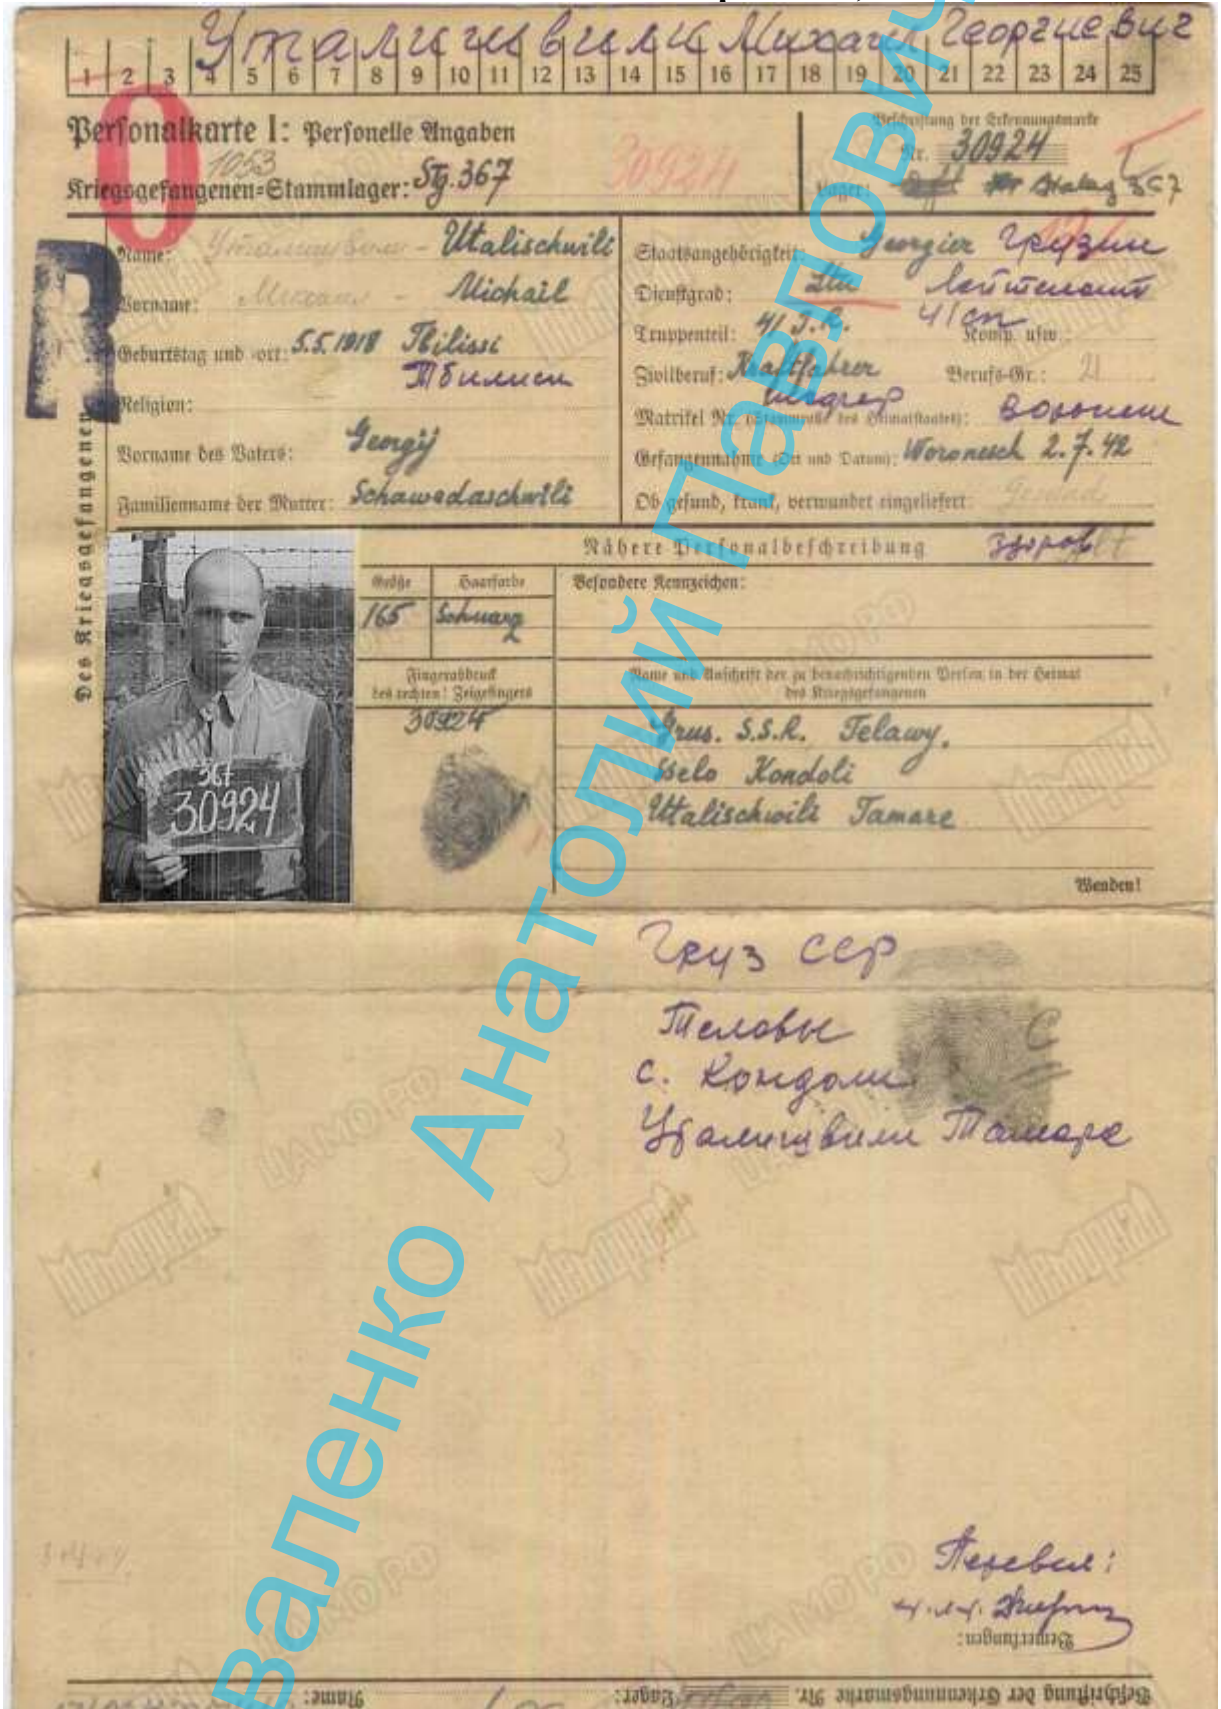 Уталишвили Михаил Георгиевич
1 2 3 4 5 6 7 8 9 10 11 12 13 14 15 16 17 18 19 20 21 22 23 24 25
Personalkarte I: Personelle Angaben
1053
Kriegsgefangenen-Stammlager: Stg. 367
30924
Beschriftung der Erkennungsmarke
Nr. 30924
Lager: Stalag 367
Des Kriegsgefangenen
Name: Уталишвили - Utalischwili
Vorname: Михаил - Michail
Geburtstag und -ort: 5.5.1918 Tbilissi
Тбилиси
Religion:
Vorname des Vaters: Georgij
Familienname der Mutter: Schawedaschwili
Staatsangehörigkeit: Georgier Грузин
Dienstgrad: Ltn Лейтенант
Truppenteil: 41 J.R. 41 сп Komp. usw.:
Zivilberuf: Kraftfahrer Berufs-Gr.: 21
шофер
Matrikel Nr. (Stammrolle des Heimatstaates): Воронеж
Gefangennahme (Ort und Datum): Woronesch 2.7.42
Ob gesund, krank, verwundet eingeliefert: Gesund
Nähere Personalbeschreibung здоров
Größe Haarfarbe Besondere Kennzeichen:
165 Schwarz
Fingerabdruck
des rechten! Zeigefingers
30924
Name und Anschrift der zu benachrichtigenden Person in der Heimat
des Kriegsgefangenen
Grus. S.S.R. Telawy.
Selo Kondoli
Utalischwili Tamare
367
30924
Wenden!
Груз ССР
Теловы
с. Кондоли
Уталишвили Тамаре
Перевел:
Bemerkungen:
Beschriftung der Erkennungsmarke Nr. Lager: Name:
ЦАМО РФ
Мемориал
Валенко Анатолий Павлович